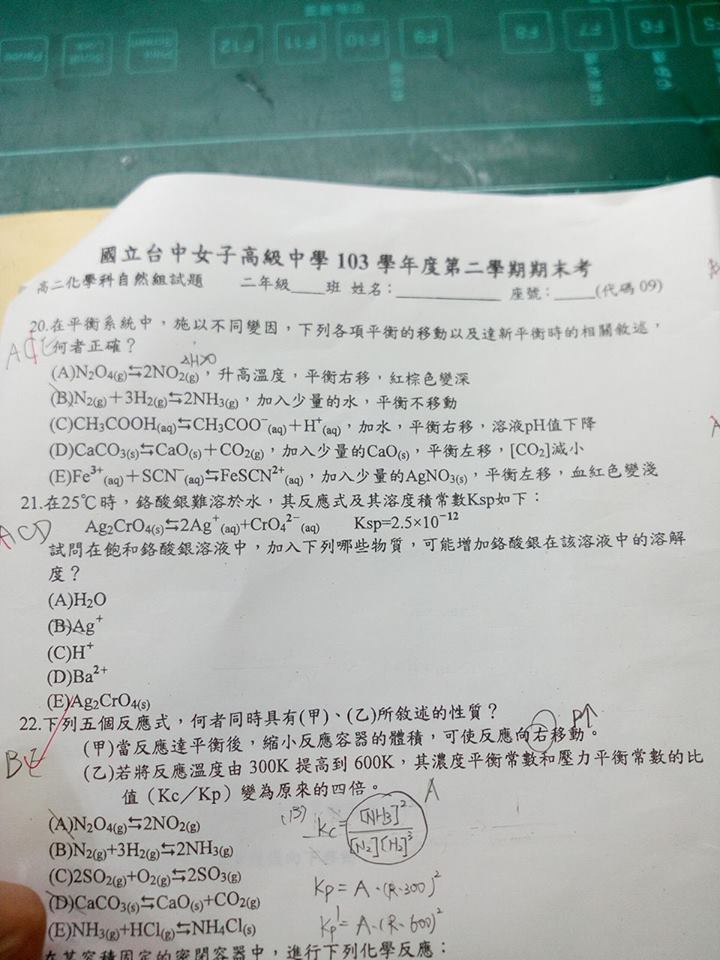 Pause
Scroll Lock
Print Screen
F12
F11
F10
F9
F8
F7
F6
F5
國立台中女子高級中學 103 學年度第二學期期末考
高二化學科自然組試題 二年級____班 姓名：____________ 座號：____(代碼 09)
20.在平衡系統中，施以不同變因，下列各項平衡的移動以及達新平衡時的相關敘述，
何者正確？
ACE
△H>0
(A)N₂O₄(g)⇆2NO₂(g)，升高溫度，平衡右移，紅棕色變深
(B)N₂(g)＋3H₂(g)⇆2NH₃(g)，加入少量的水，平衡不移動
(C)CH₃COOH(aq)⇆CH₃COO⁻(aq)＋H⁺(aq)，加水，平衡右移，溶液pH值下降
(D)CaCO₃(s)⇆CaO(s)＋CO₂(g)，加入少量的CaO(s)，平衡左移，[CO₂]減小
(E)Fe³⁺(aq)＋SCN⁻(aq)⇆FeSCN²⁺(aq)，加入少量的AgNO₃(s)，平衡左移，血紅色變淺
21.在25℃時，鉻酸銀難溶於水，其反應式及其溶度積常數Ksp如下：
Ag₂CrO₄(s)⇆2Ag⁺(aq)+CrO₄²⁻(aq) Ksp=2.5×10⁻¹²
ACD
試問在飽和鉻酸銀溶液中，加入下列哪些物質，可能增加鉻酸銀在該溶液中的溶解
度？
(A)H₂O
(B)Ag⁺
(C)H⁺
(D)Ba²⁺
(E)Ag₂CrO₄(s)
22.下列五個反應式，何者同時具有(甲)、(乙)所敘述的性質？
P↑
(甲)當反應達平衡後，縮小反應容器的體積，可使反應向右移動。
BE
(乙)若將反應溫度由 300K 提高到 600K，其濃度平衡常數和壓力平衡常數的比
值（Kc／Kp）變為原來的四倍。
A
(A)N₂O₄(g)⇆2NO₂(g)
(B) Kc=[NH₃]²/[N₂][H₂]³
(B)N₂(g)+3H₂(g)⇆2NH₃(g)
(C)2SO₂(g)+O₂(g)⇆2SO₃(g)
Kp=A·(R·300)²
(D)CaCO₃(s)⇆CaO(s)+CO₂(g)
Kp'=A·(R·600)²
(E)NH₃(g)+HCl(g)⇆NH₄Cl(s)
在某容積固定的密閉容器中，進行下列化學反應：